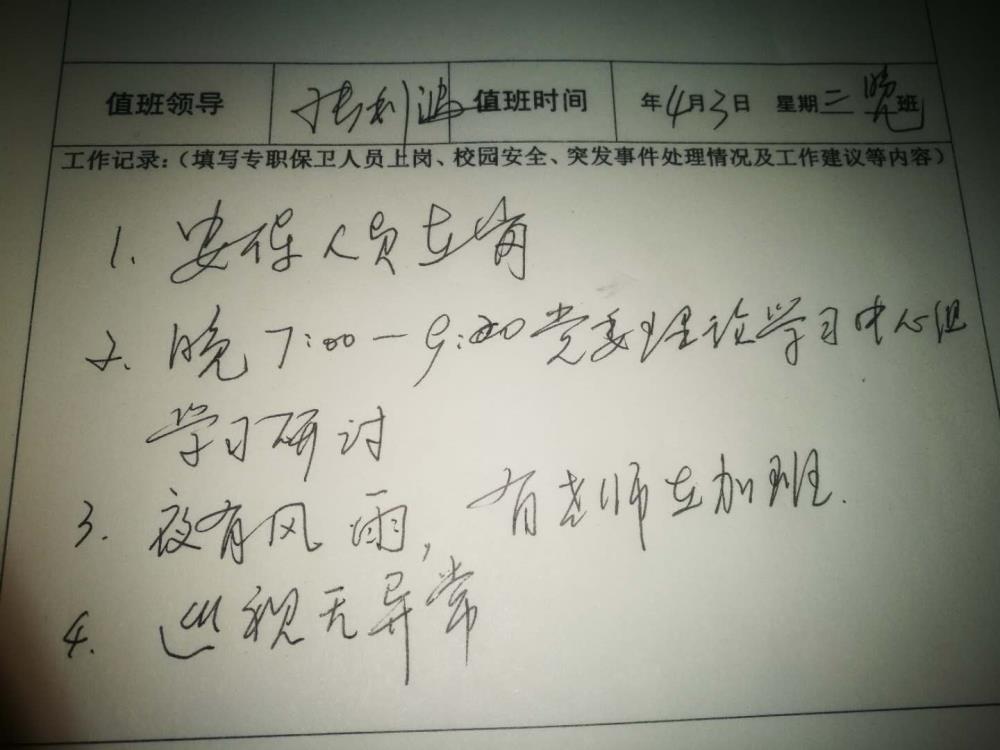 值班领导 张利鸿 值班时间 年4月3日 星期三 晚班
工作记录：（填写专职保卫人员上岗、校园安全、突发事件处理情况及工作建议等内容）
1. 安保人员在岗
2. 晚7:00—9:20党委理论学习中心组
学习研讨
3. 夜有风雨，有老师在加班.
4. 巡视无异常